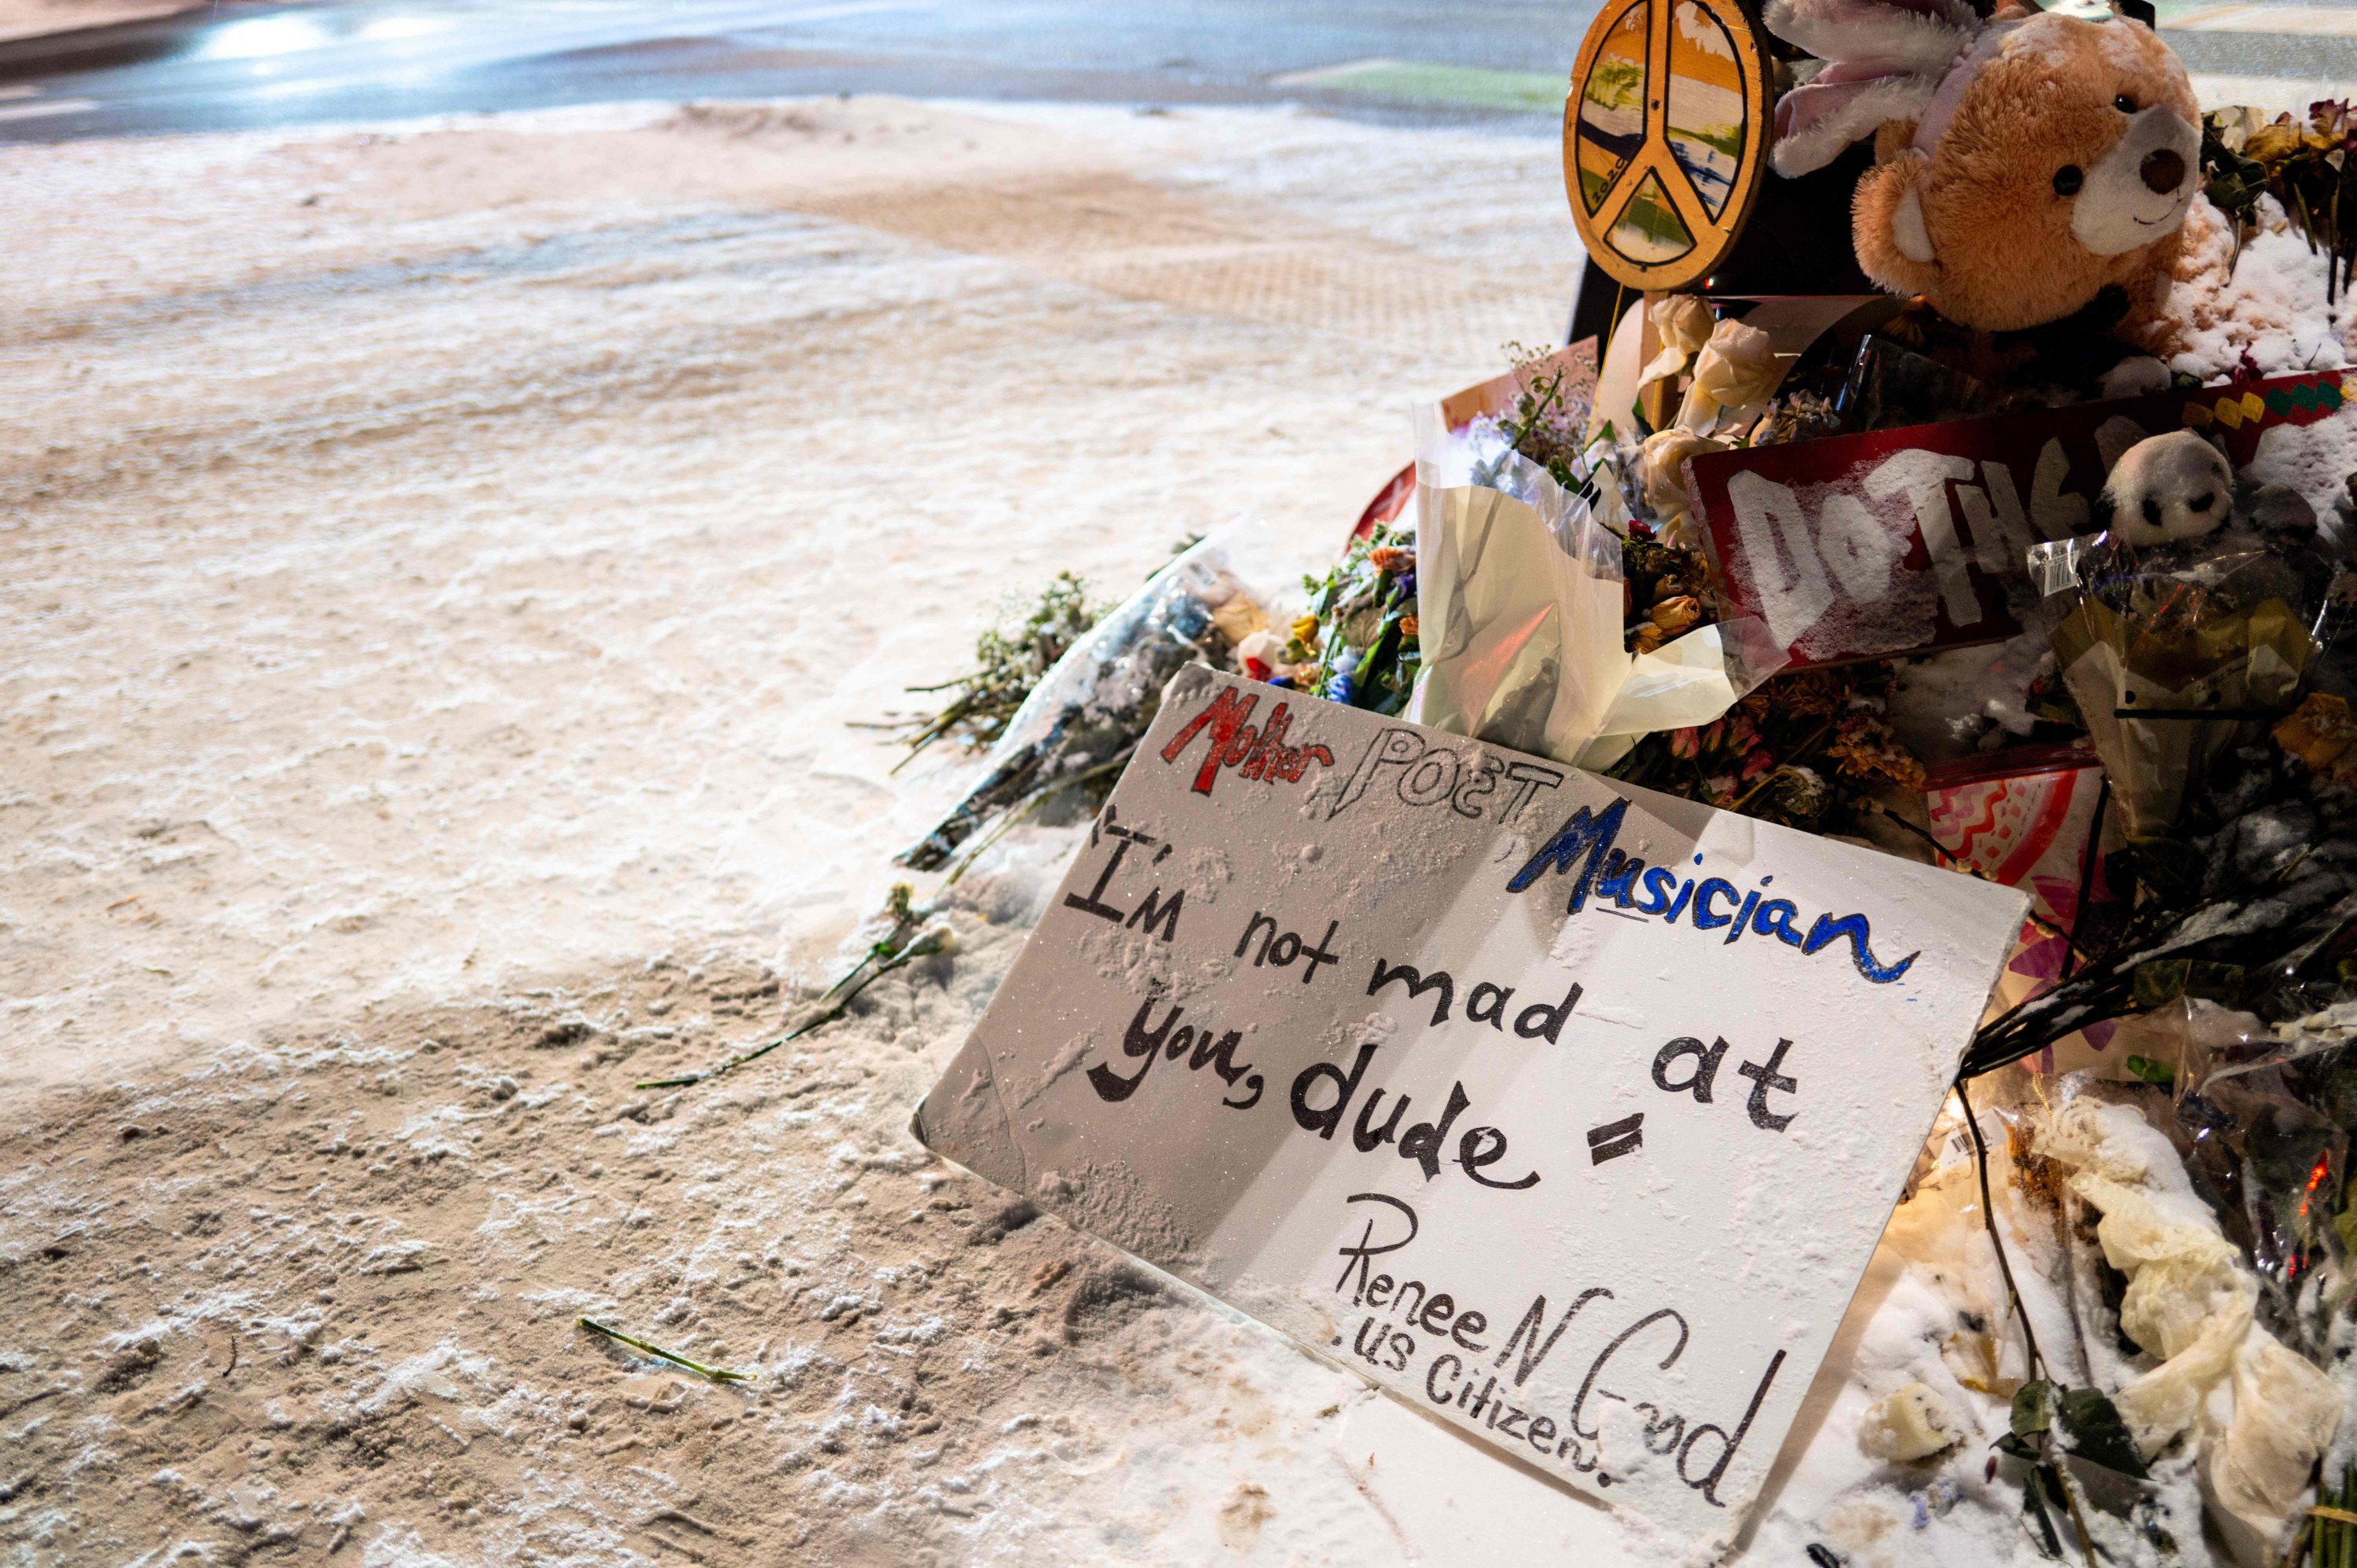 2026
DO THE
Mother POET, Musician
"I'm not mad at
you, dude"
Renee N Good
. us Citizen.